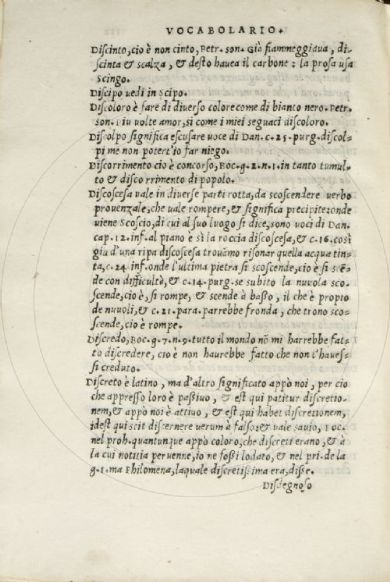 VOCABOLARIO.
Discinto, cio è non cinto, Petr. son. Già fiammeggiaua, di-
scinta & scalza, & desto hauea il carbone: la prosa usa
Scingo.
Discipo uedi in Scipo.
Discoloro è fare di diuerso colore come di bianco nero. Petr.
son. i iu uolte amor, si come i miei seguaci discoloro.
Discolpo significa escusare uoce di Dan. c. 25. purg. discol-
pi me non potert'io far niego.
Discorrimento cio è concorso, Boc. g. 2. n. 1. in tanto tumul-
to & discorrimento di popolo.
Discoscesa uale in diuerse parti rotta, da scoscendere uerbo
prouenzale, che uale rompere, & significa precipite; onde
uiene Scoscio, di cui al suo luogo si dice, sono uoci di Dan.
cap. 12. inf. al piano è sì la roccia discoscesa, & c. 16. così
giu d'una ripa discoscesa trouāmo risonar quella acqua tin-
ta, c. 24. inf. onde l'ultima pietra si scoscende, cio è si scē-
de con difficultà, & c. 14. purg. se subito la nuuola sco-
scende, cio è, si rompe, & scende à basso, il che è propio
de nuuoli, & c. 21. para. parrebbe fronda, che trono sco-
scende, cio è rompe.
Discredo, Boc. g. 7. n. 9. tutto il mondo nō mi harrebbe fat-
to discredere, cio è non haurebbe fatto che non l'haues-
si creduto.
Discreto è latino, ma d'altro significato appò noi, per cio
che appresso loro è passiuo, & est qui patitur discretio-
nem, & appò noi è attiuo, & est qui habet discretionem,
idest qui scit discernere uerum à falso; & uale sauio, Boc.
nel proh. quantunque appò coloro, che discreti erano, & à
la cui notitia peruenne, io ne fossi lodato, & nel pri. de la
g. 1. ma Philomena, laquale discretissima era, disse.
Disdegnoso